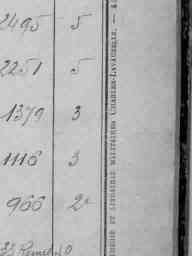 2495 5
2251 5
1379 3
1116 3
966 2
ET LIBRAIRIE MILITAIRES CHARLES-LAVAUZELLE. —